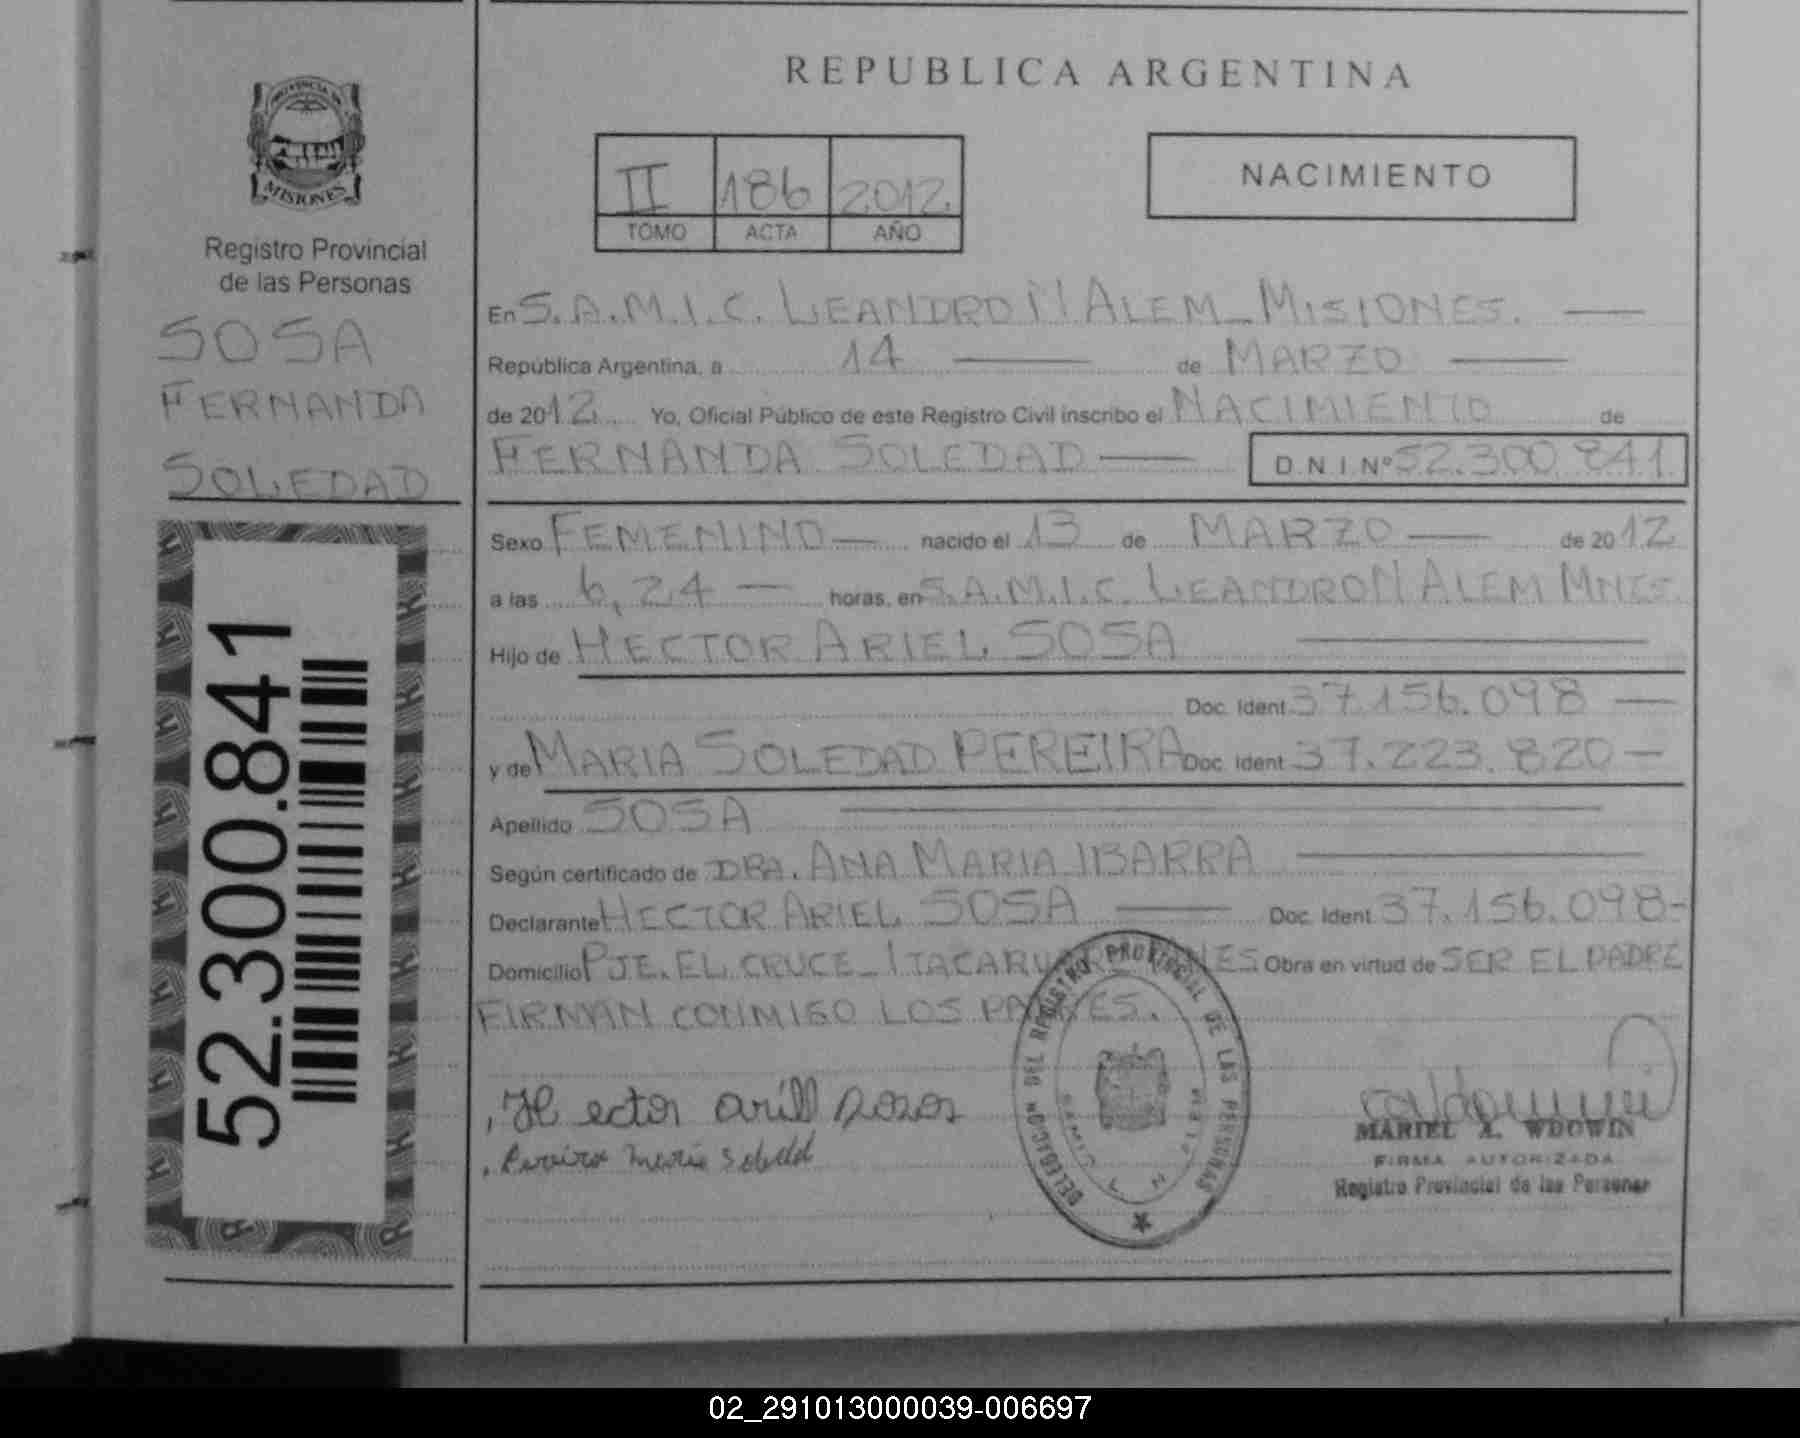 PROVINCIA DE
MISIONES
Registro Provincial
de las Personas
SOSA
FERNANDA
SOLEDAD
52.300.841
REPUBLICA ARGENTINA
II 186 2012
TOMO ACTA AÑO
NACIMIENTO
En S.A.M.I.C. LEANDRO N ALEM_MISIONES.
República Argentina, a 14 de MARZO
de 2012 Yo, Oficial Público de este Registro Civil inscribo el NACIMIENTO de
FERNANDA SOLEDAD D.N.I Nº 52.300.841
Sexo FEMENINO nacido el 13 de MARZO de 2012
a las 6,24 horas, en S.A.M.I.C. LEANDRO N ALEM MNES.
Hijo de HECTOR ARIEL SOSA
Doc. Ident. 37.156.098
y de MARIA SOLEDAD PEREIRA Doc. Ident. 37.223.820
Apellido SOSA
Según certificado de DRA. ANA MARIA IBARRA
Declarante HECTOR ARIEL SOSA Doc. Ident. 37.156.098
Domicilio PJE. EL CRUCE_ITACARUARE MNES Obra en virtud de SER EL PADRE
FIRMAN CONMIGO LOS PADRES.
Hector ariell sosa
Pereira Maria Soledad
DELEGACION DEL REGISTRO PROVINCIAL DE LAS PERSONAS
MARIEL A. WDOWIN
FIRMA AUTORIZADA
Registro Provincial de las Personas
02_291013000039-006697